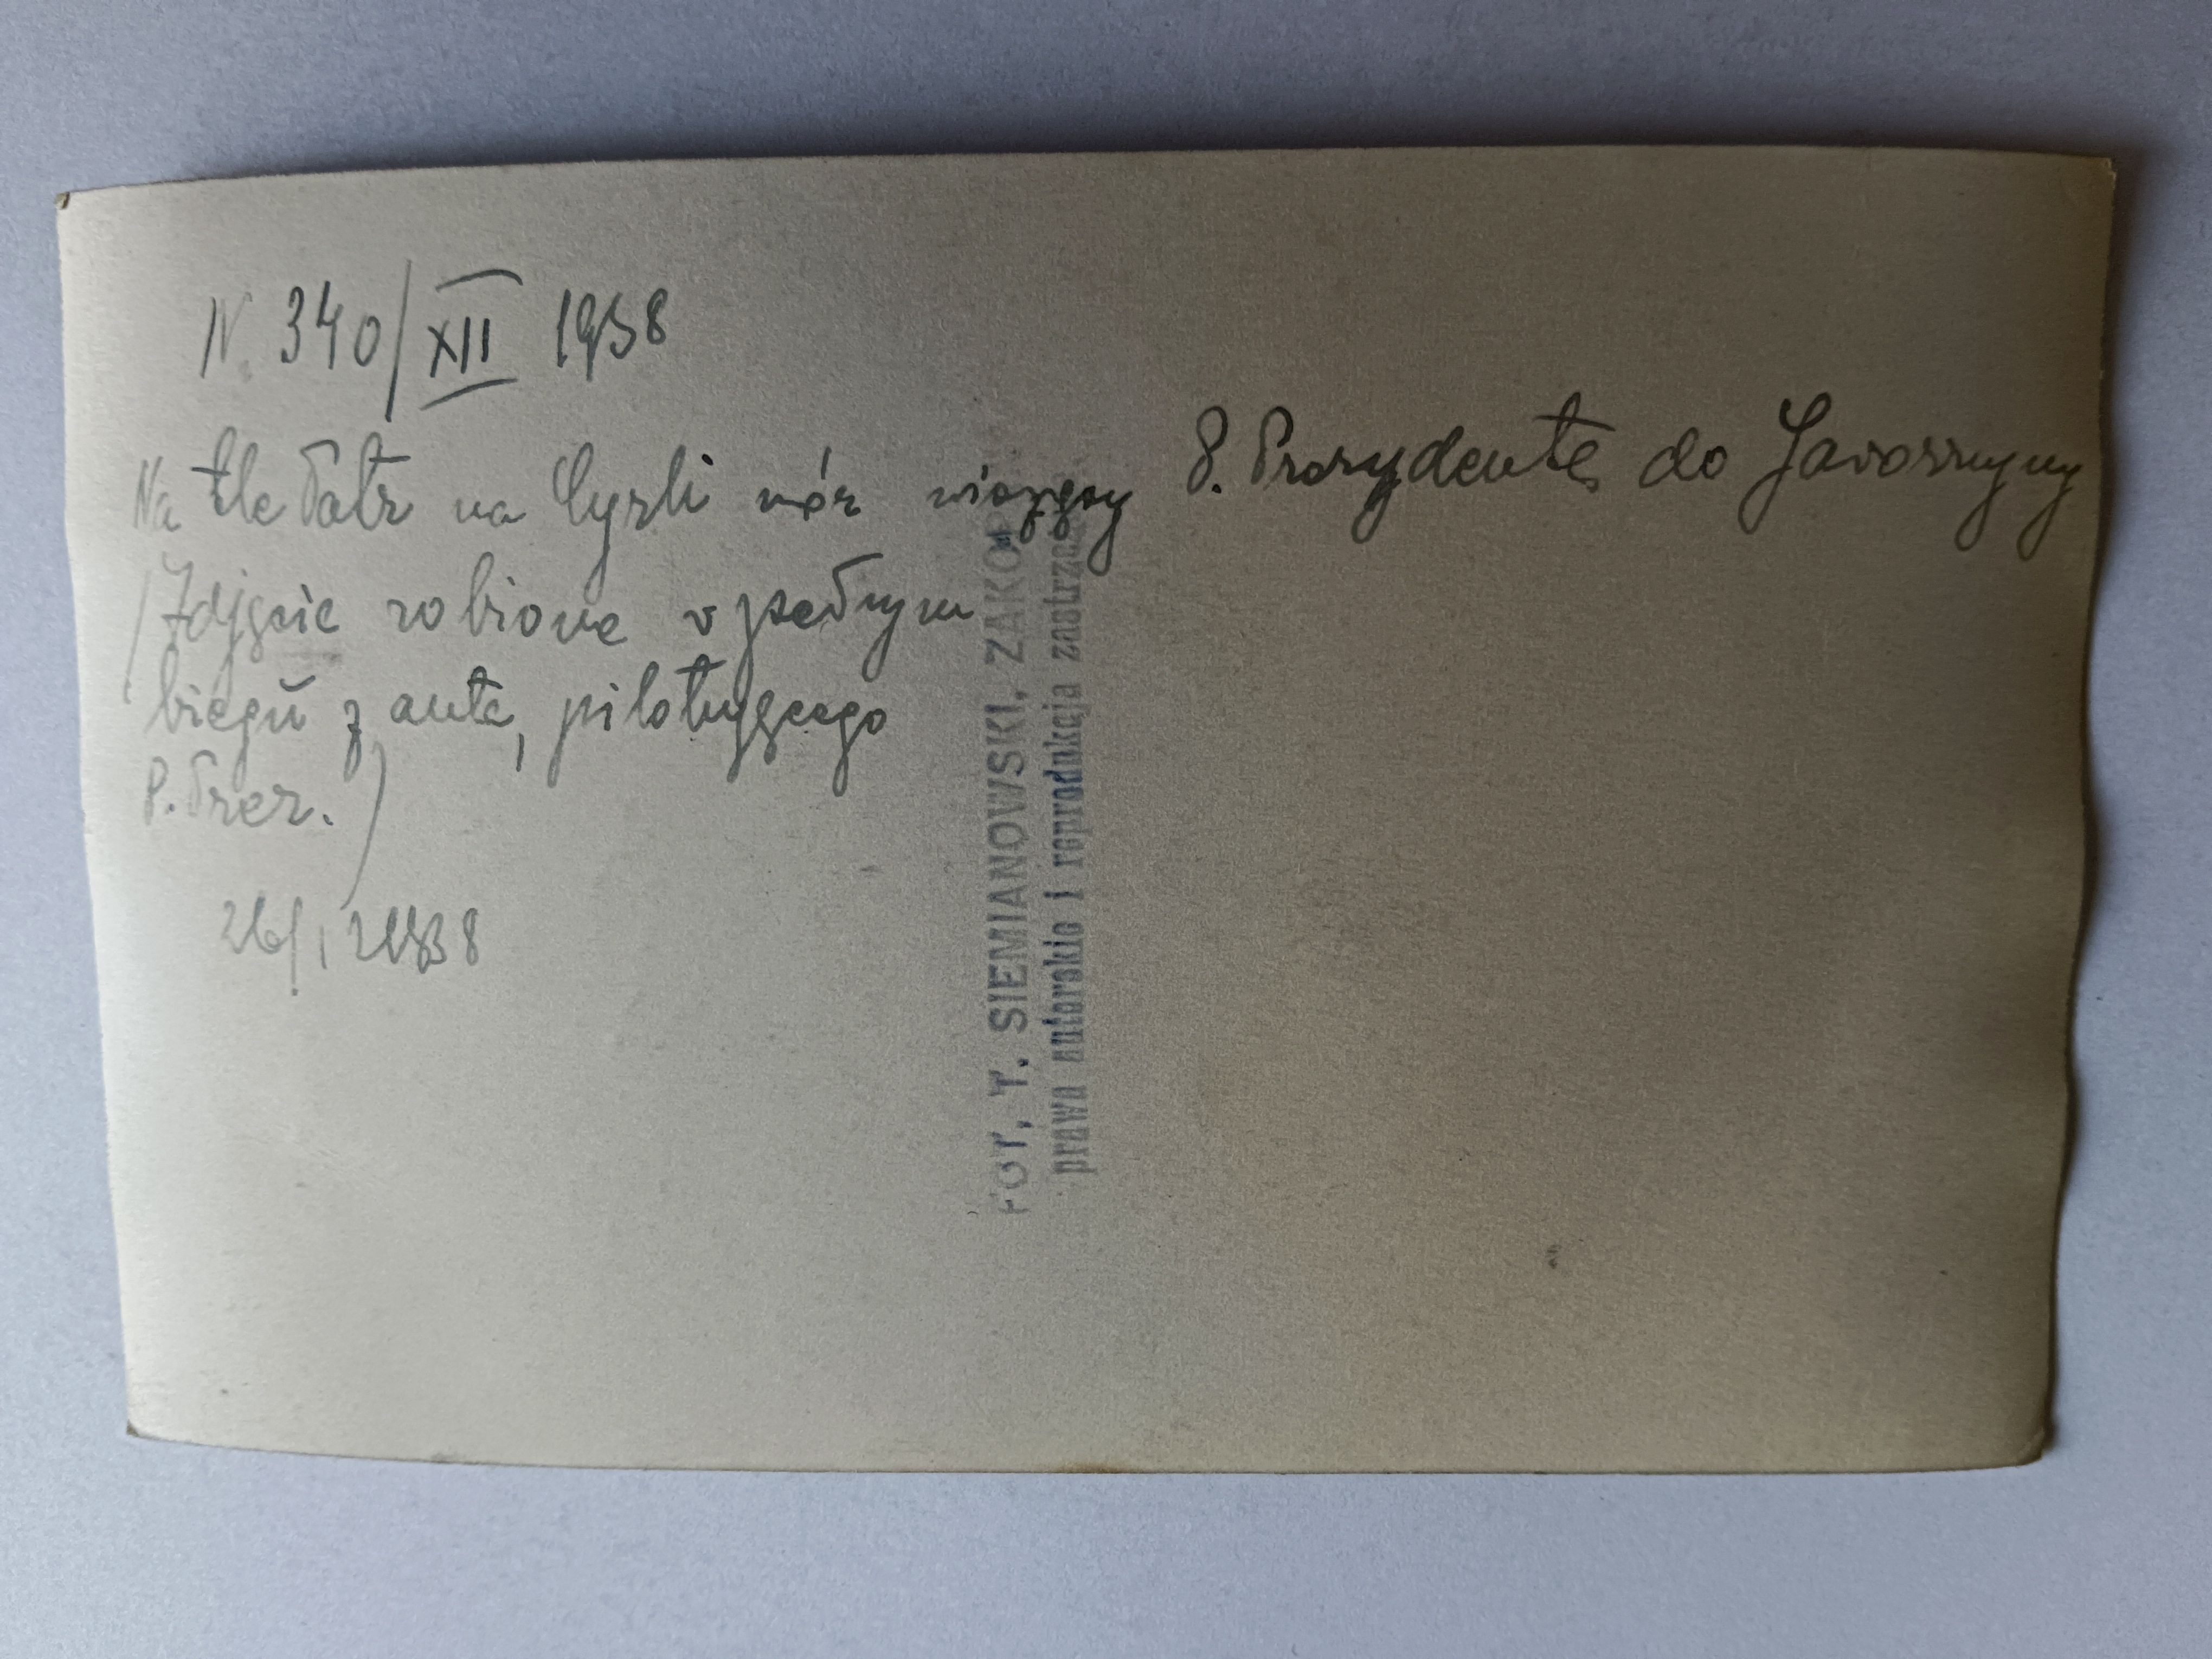 N. 340/XII 1938
Na tle Tatr na Cyrli wóz wiozący P. Prezydenta do Jaworzyny
/Zdjęcie robione w pełnym
biegu z auta, pilotującego
P. Prez.)
26/
FOT. T. SIEMIANOWSKI, ZAKOP
prawa autorskie i reprodukcja zastrze